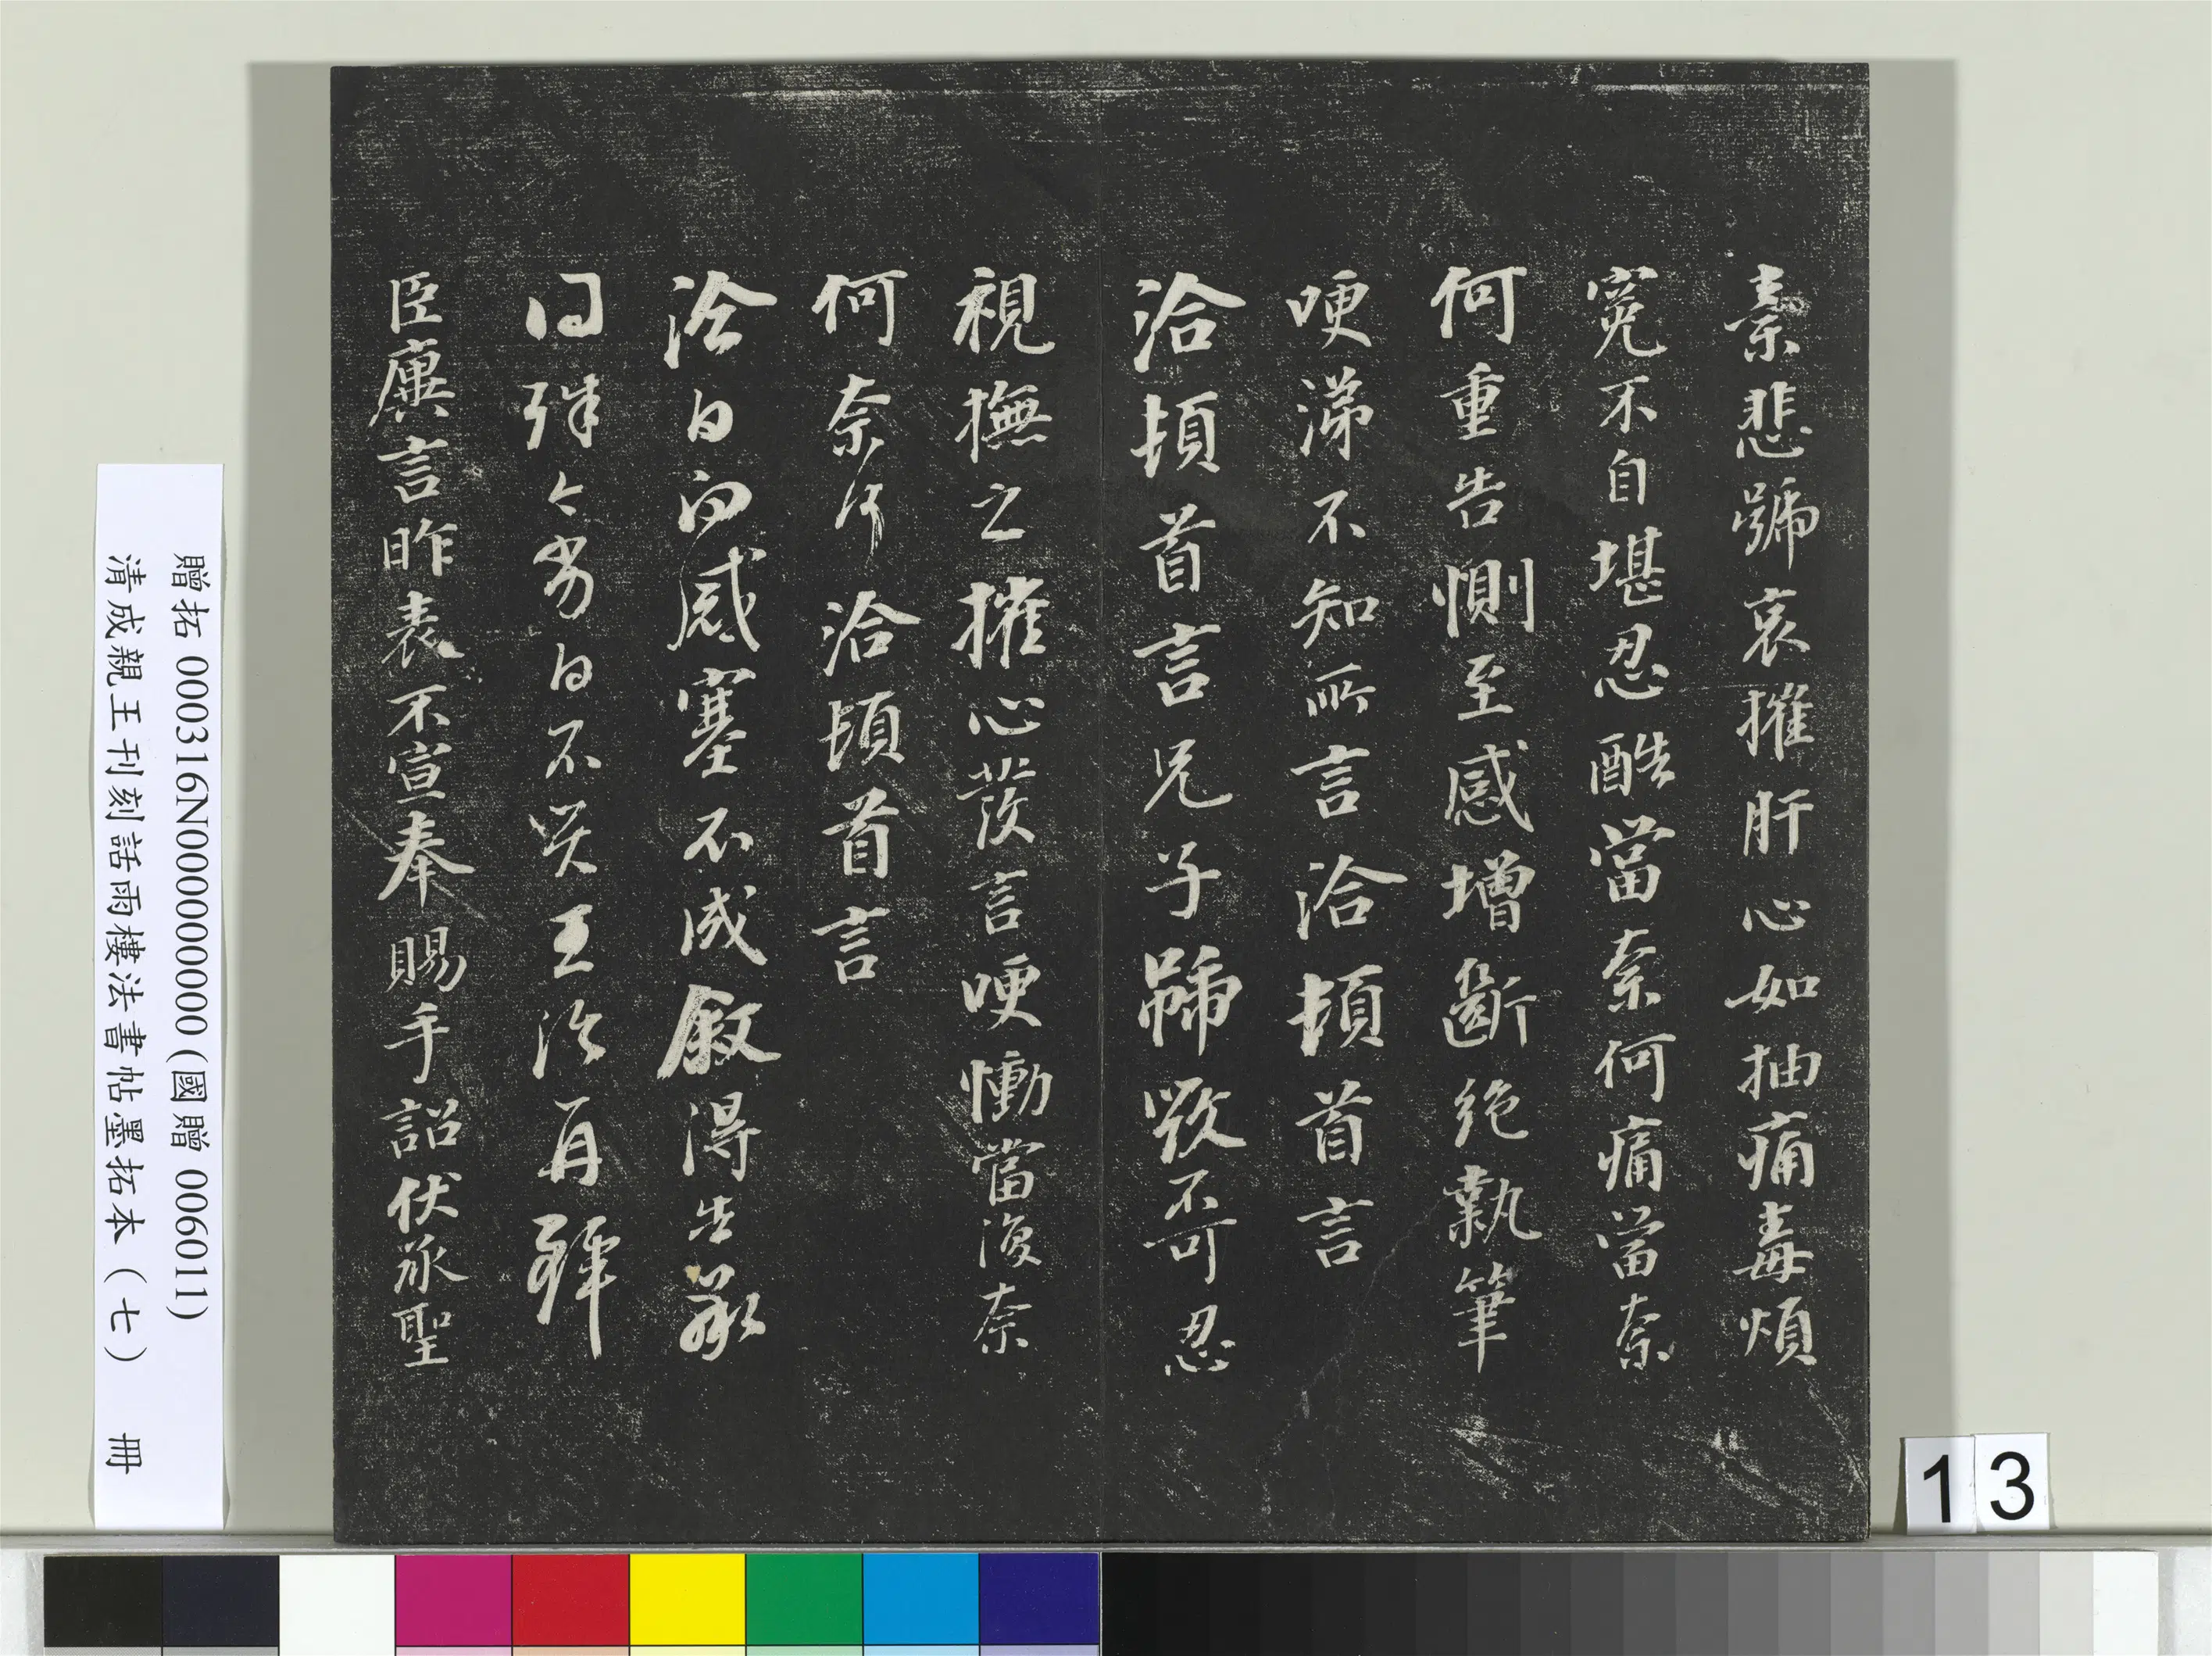 素悲號哀摧肝心如抽痛毒煩
冤不自堪忍酷當奈何痛當奈
何重告惻至感增斷絕執筆
哽涕不知所言洽頓首言
洽頓首言兄子號毀不可忍
視撫之摧心發言哽慟當復奈
何奈何洽頓首言
洽白向感塞不成敘得告承
同殊々劣白不具王洽再拜
臣廙言昨表不宣奉賜手詔伏承聖
贈拓 000316N000000000 (國贈 006011)
清成親王刊刻詒晉樓法書帖墨拓本(七) 冊
13